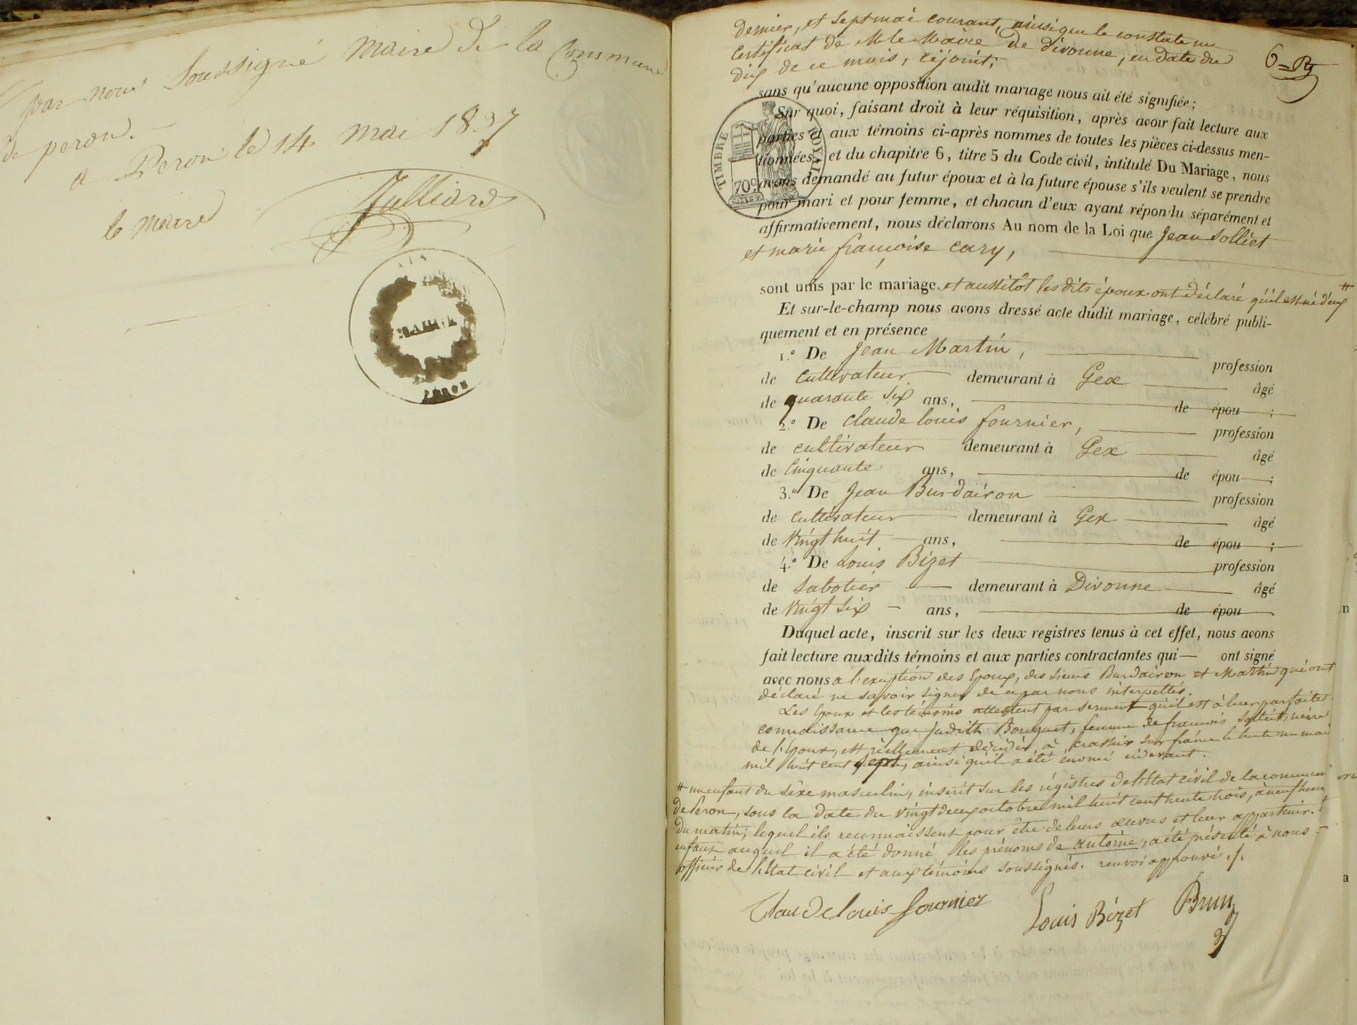 par nous Soussigné maire de la Commune
de peron. —
a Peron le 14 mai 1837
le maire
Julliard
AIN
MAIRIE
PERON
dernier, et sept mai courant, ainsi que le constate un
certificat de Mr le Maire de Divonne, en date du
dix de ce mois, ci joint;
6 =
sans qu'aucune opposition audit mariage nous ait été signifiée;
Sur quoi, faisant droit à leur réquisition, après avoir fait lecture aux
parties et aux témoins ci-après nommes de toutes les pièces ci-dessus men-
tionnées, et du chapitre 6, titre 5 du Code civil, intitulé Du Mariage, nous
avons demandé au futur époux et à la future épouse s'ils veulent se prendre
pour mari et pour femme, et chacun d'eux ayant répondu séparément et
affirmativement, nous déclarons Au nom de la Loi que Jean Solliet
et marie françoise cary,
TIMBRE ROYAL
70 c
sont unis par le mariage. et aussitôt les dits époux ont déclaré qu'il est né d'eux #
Et sur-le-champ nous avons dressé acte dudit mariage, célébré publi-
quement et en présence
1.° De Jean Martin, profession
de cultivateur demeurant à Gex âgé
de quarante six ans, de épou ;
2.° De claude louis fournier, profession
de cultivateur demeurant à Gex âgé
de Cinquante ans, de épou ;
3.° De Jean Burdairon profession
de cultivateur demeurant à Gex âgé
de vingt huit ans, de épou ;
4.° De Louis Bizet profession
de Sabotier demeurant à Divonne âgé
de vingt six — ans, de épou
Duquel acte, inscrit sur les deux registres tenus à cet effet, nous avons
fait lecture auxdits témoins et aux parties contractantes qui — ont signé
avec nous à l'exception des époux, des sieurs Burdairon et Martin qui ont
déclaré ne savoir signer de ce par nous interpellés.
Les époux et les témoins attestent par serment qu'il est à leur parfaite
connaissance que Judith Bouquet, femme de françois Solliet, mère
de l'époux, est réellement décédée, à crassier sur france le trente un mai
mil huit cent sept, ainsi qu'il a été énoncé cidevant.
# un enfant du sèxe masculin, inscrit sur les régistres de l'état civil de la commune
de Peron, sous la date du vingt deux octobre mil huit cent trente trois, à neuf heures
du matin; lequel ils reconnaissent pour être de leurs œuvres et leur appartenir.
enfant auquel il a été donné les prénoms de antoine, a été présenté à nous —
officier de l'état civil et aux témoins soussignés. renvoi approuvé ./.
Claude louis fournier
Louis Bizet
Brun